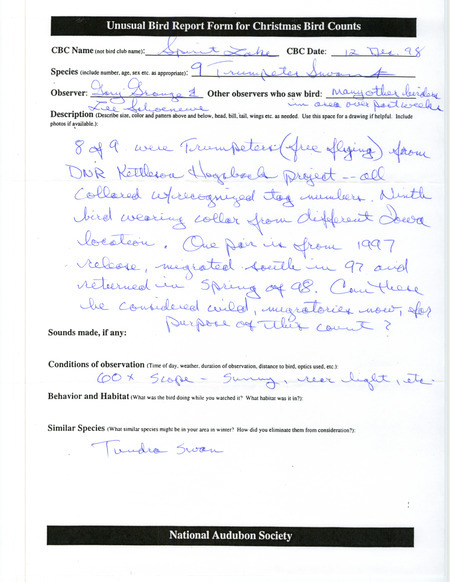 Unusual Bird Report Form for Christmas Bird Counts
CBC Name (not bird club name): Spirit Lake CBC Date: 12 Dec. 98
Species (include number, age, sex etc. as appropriate): 9 Trumpeter Swans
Observer: Gary Other observers who saw bird: Many other birders
Lee Schoenewe in area over past weeks
Description (Describe size, color and pattern above and below, head, bill, tail, wings etc. as needed. Use this space for a drawing if helpful. Include
photos if available.):
8 of 9 were Trumpeters (free flying) from
DNR Kettleson Hogsback project -- all
collared w/recognized tag numbers. Ninth
bird wearing collar from different Iowa
location. One pair is from 1997
release, migrated south in 97 and
returned in Spring of 98. Can these
be considered wild, migratories now, for
purpose of this count?
Sounds made, if any:
Conditions of observation (Time of day, weather, duration of observation, distance to bird, optics used, etc.):
60x scope - sunny, rear light, etc.
Behavior and Habitat (What was the bird doing while you watched it? What habitat was it in?):
Similar Species (What similar species might be in your area in winter? How did you eliminate them from consideration?):
Tundra Swan
National Audubon Society